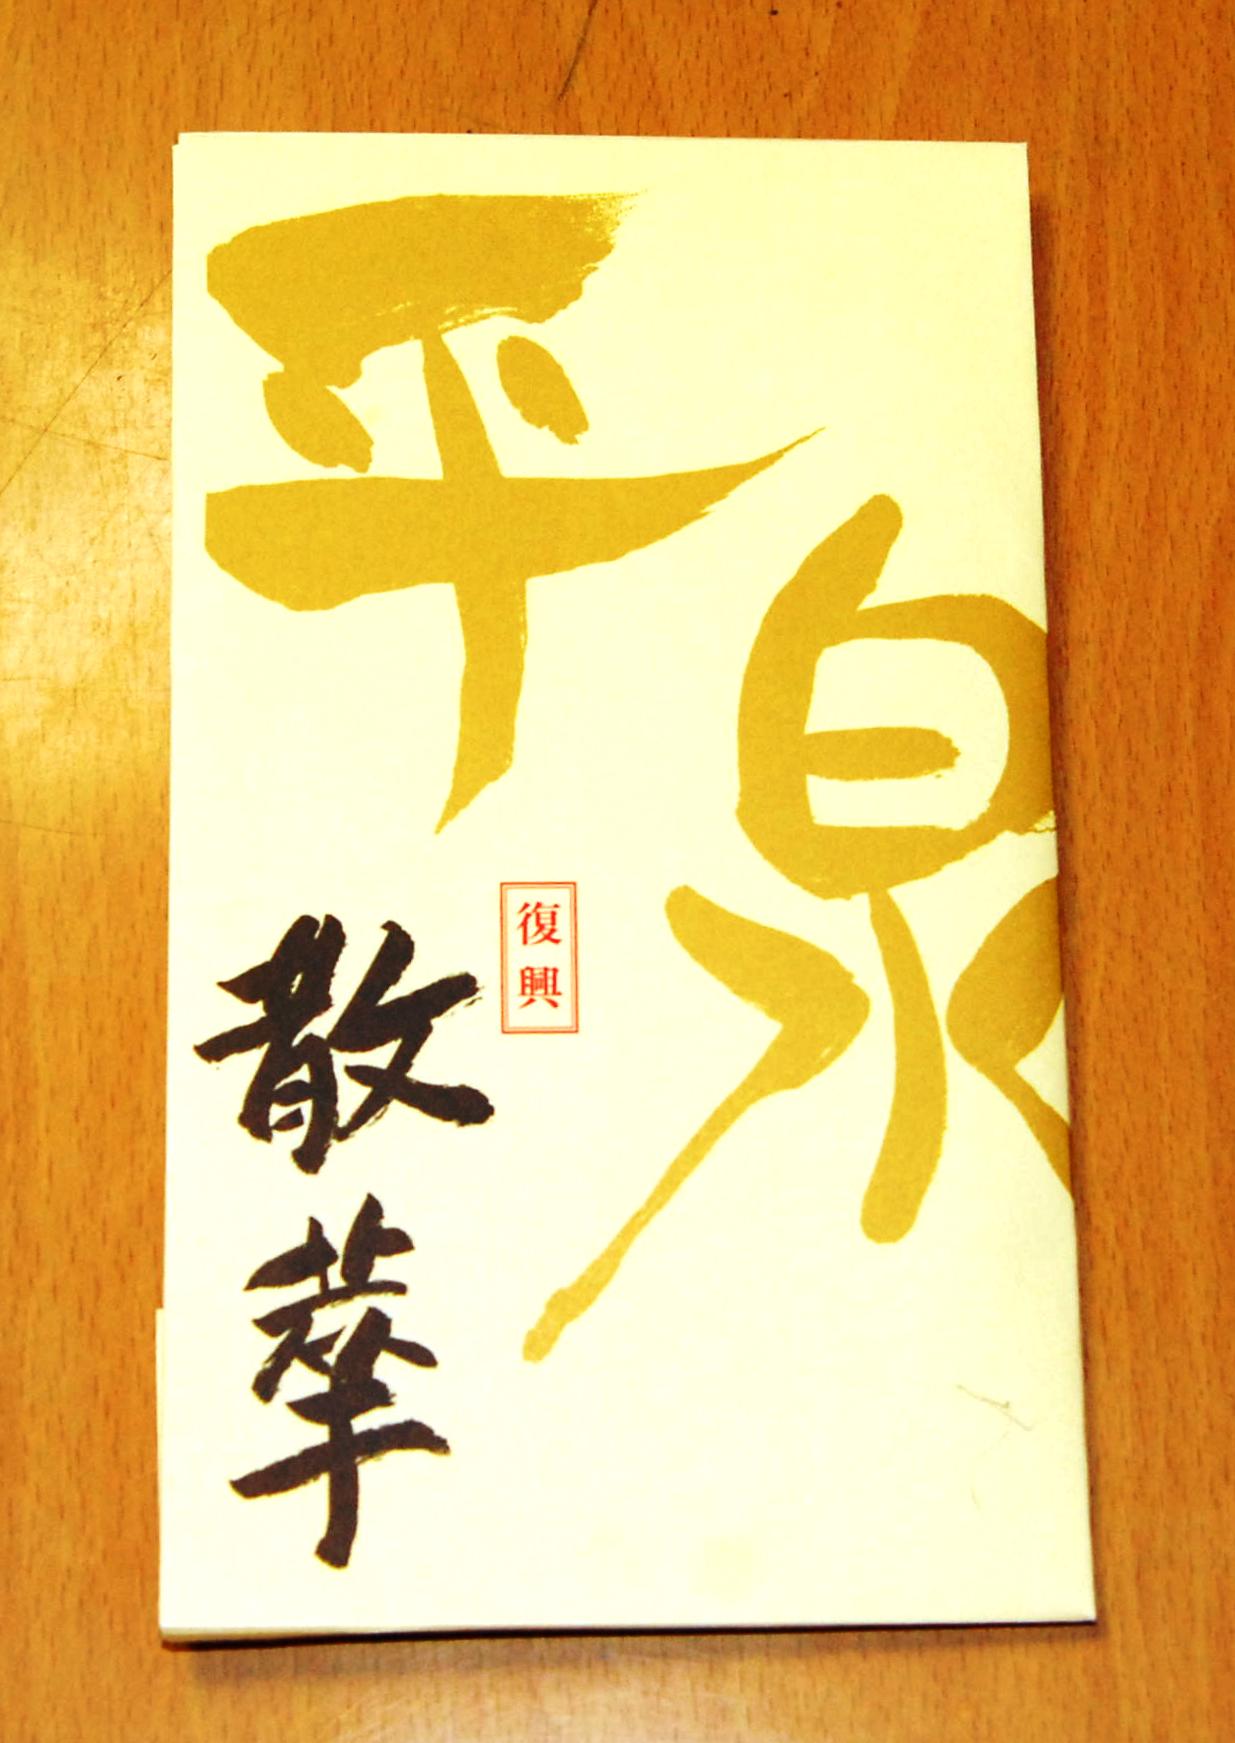 平泉
復興
散華